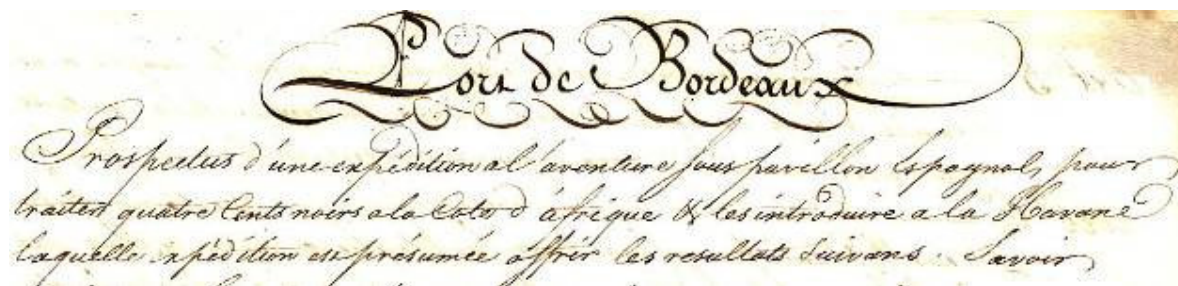 Port de Bordeaux
Prospectus d'une expédition a l'aventure sous pavillon Espagnol, pour
traiter quatre Cents noirs a la Cote d'afrique & les introduire a la Havane
laquelle expédition est présumée offrir les resultats Suivans. Savoir